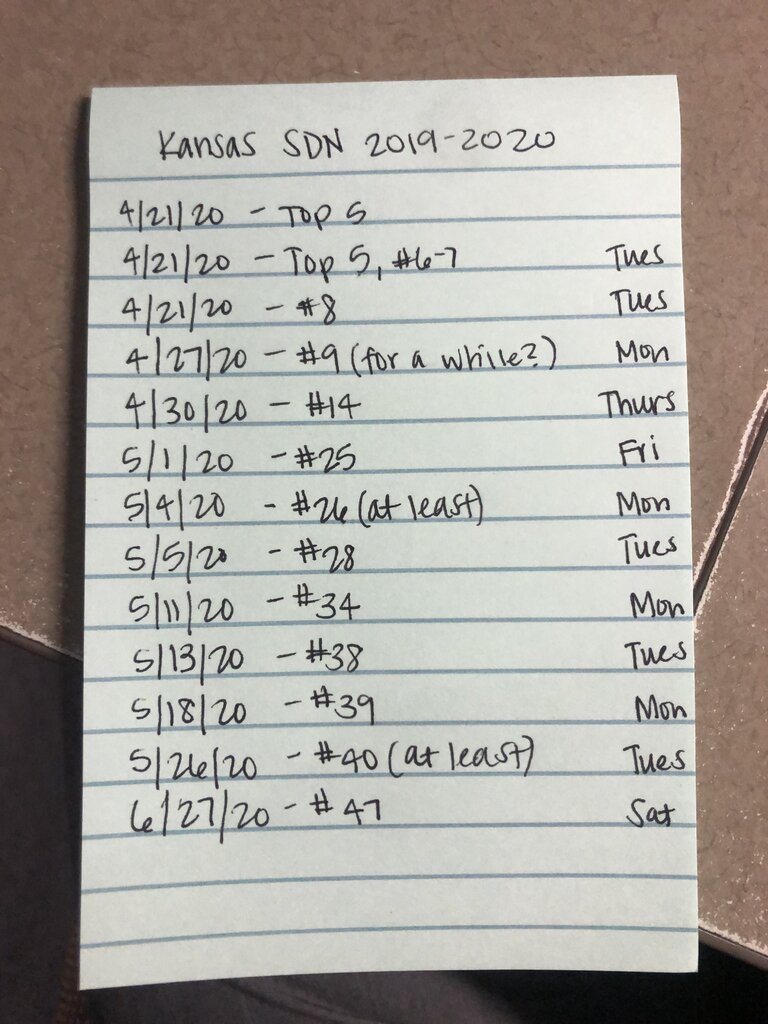 Kansas SDN 2019-2020
4/21/20 - Top 5
4/21/20 - Top 5, #6-7 Tues
4/21/20 - #8 Tues
4/27/20 - #9 (for a while?) Mon
4/30/20 - #14 Thurs
5/1/20 - #25 Fri
5/4/20 - #26 (at least) Mon
5/5/20 - #28 Tues
5/11/20 - #34 Mon
5/13/20 - #38 Tues
5/18/20 - #39 Mon
5/26/20 - #40 (at least) Tues
6/27/20 - #47 Sat